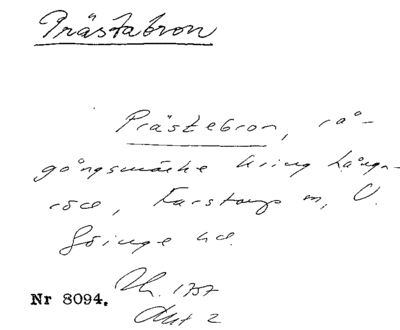 Prästabron
Prästebron, rå-
gångsmärke kring Långa-
röd, Farstorps sn, V.
Göinge hd.
Nr 8094. Lh. 1757
Akt 2